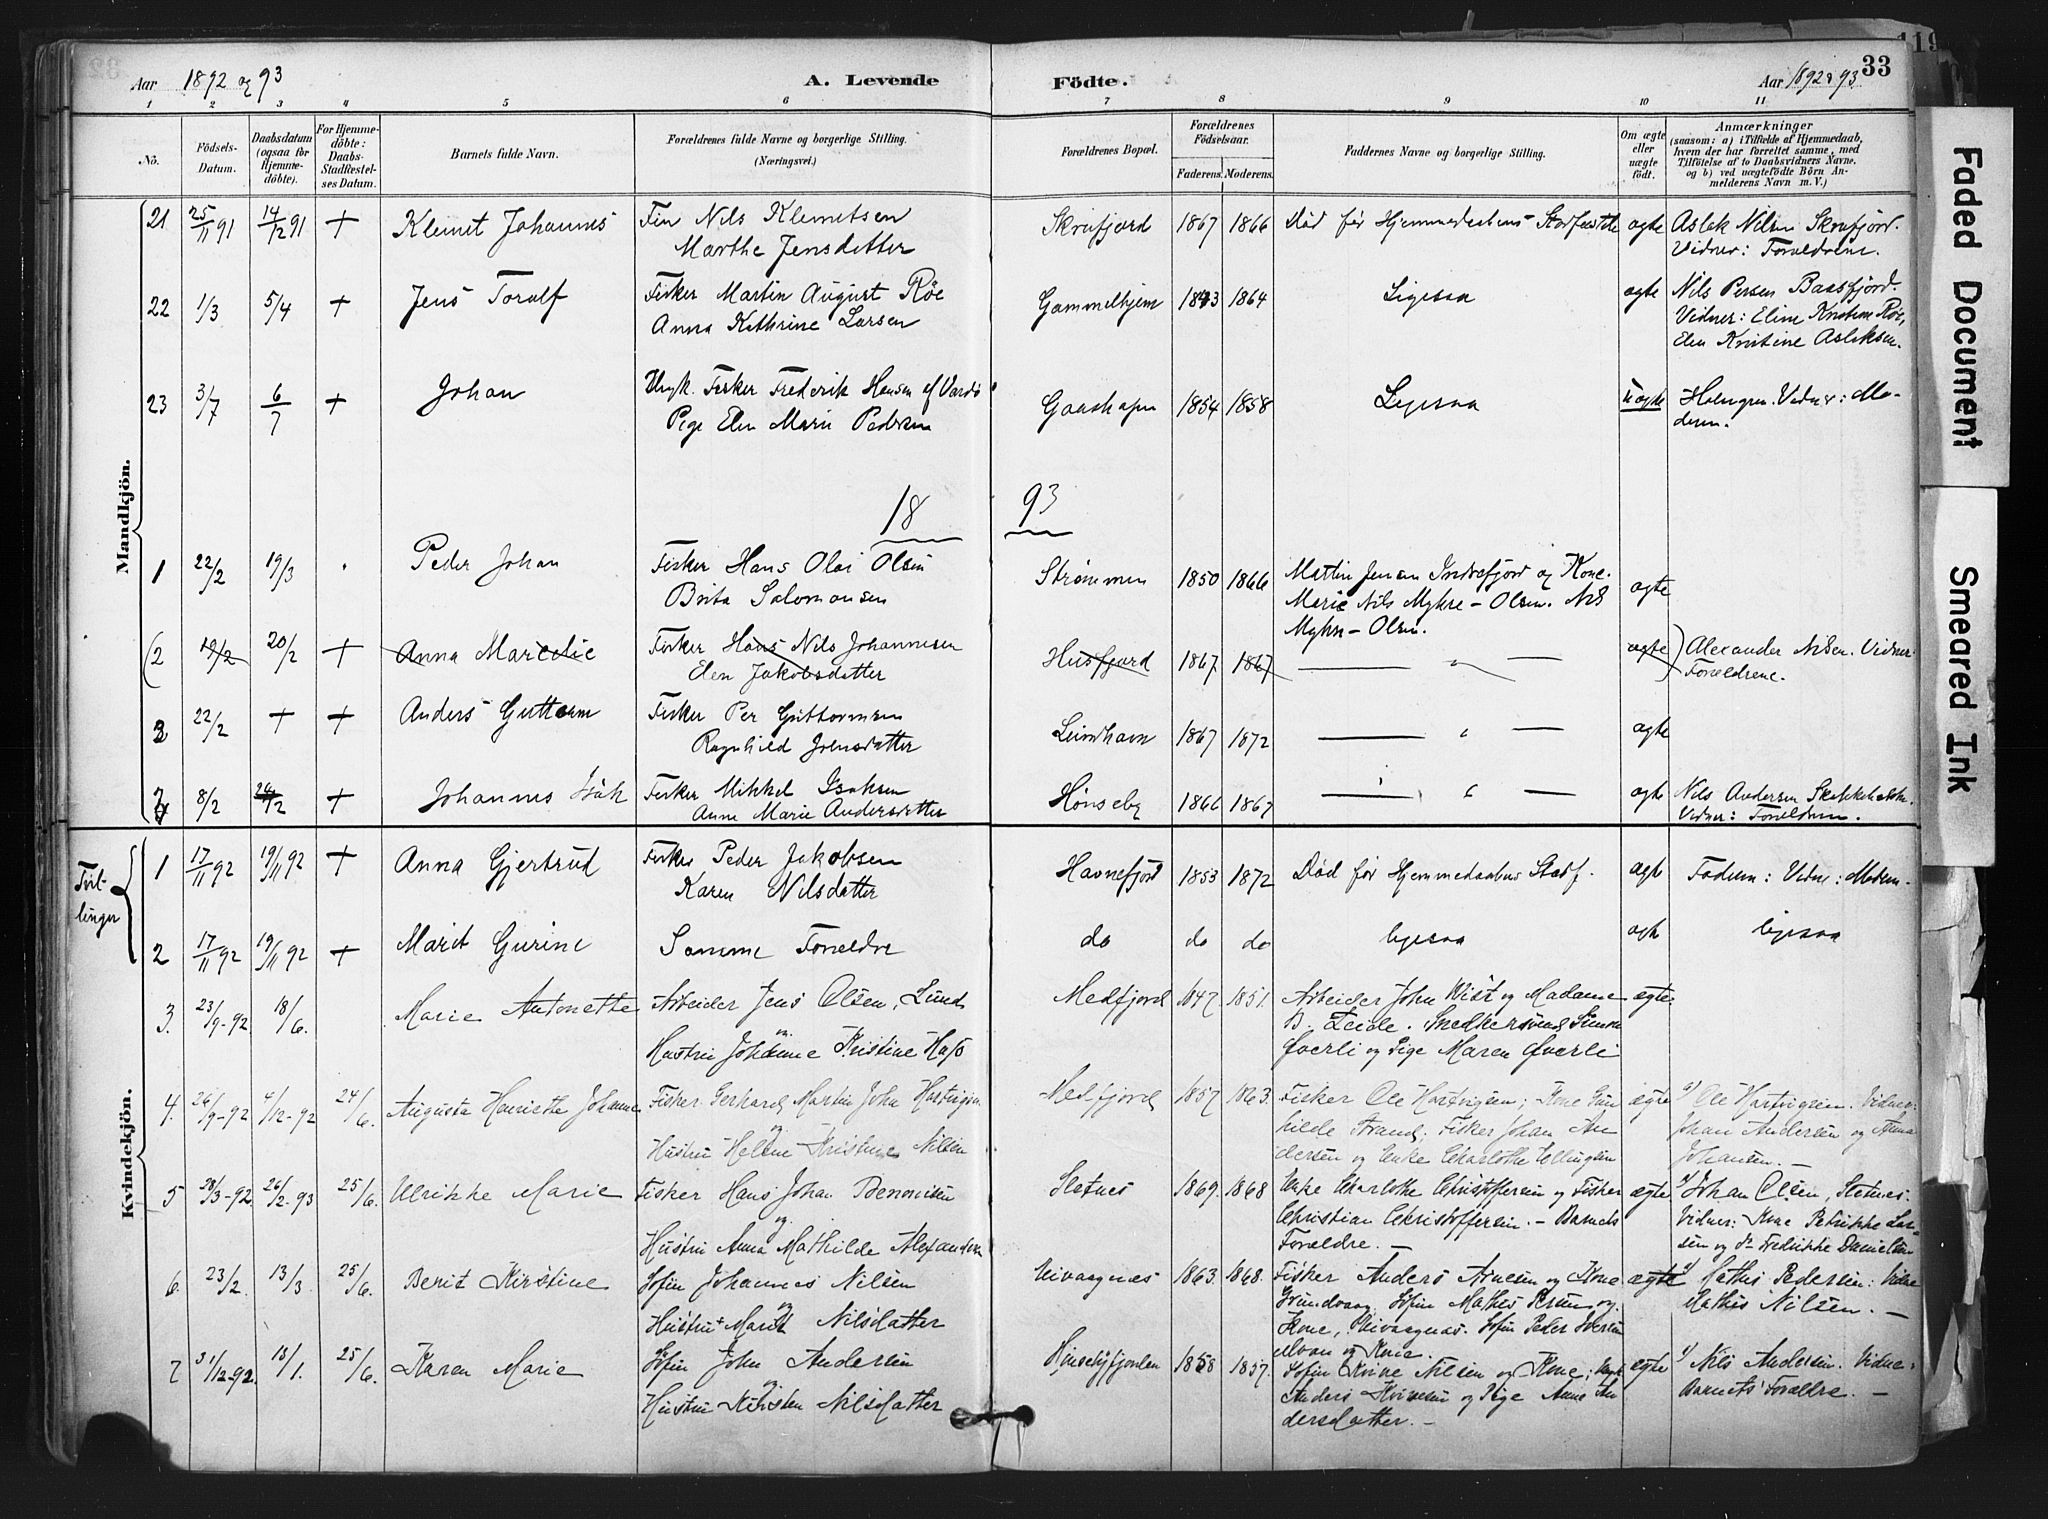 Aar 1892 og 93
A. Levende Födte.
Aar 1892 & 93
33
119
1 2 3 4 5 6 7 8 9 10 11
No.
Födsels-Datum.
Daabsdatum (ogsaa for Hjemmedöbte).
For Hjemmedöbte: Daabs-Stadfæstelses Datum.
Barnets fulde Navn.
Forældrenes fulde Navne og borgerlige Stilling. (Næringsvei.)
Forældrenes Bopæl.
Forældrenes Födselsaar.
Faderens. Moderens.
Faddernes Navne og borgerlige Stilling.
Om ægte eller uægte födt.
Anmærkninger
(saasom: a) i Tilfælde af Hjemmedaab, hvem der har forrettet samme, med Tilföielse af to Daabsvidners Navne. og b) ved uægtefödte Börn Anmelderens Navn m. V.)
Mandkjön.
21 25/11 91 14/12 91 + Klemet Johannes Fin Nils Klemetsen Skrufjord 1867 1866 Død før Hjemmedaabens Stadfæstelse ægte Aslak Nilsen Skrufjord.
Marthe Jensdatter Vidner: Forældrene.
22 1/3 5/4 + Jens Toralf Fisker Martin August Röe Gammelhjem 1843 1864 Ligesaa ægte Nils Persen Baasfjord.
Anna Kathrine Larsen Vidner: Eline Kristine Röe,
Elen Kristine Aslaksen.
23 3/7 6/7 + Johan Ungk. Fisker Frederik Hansen af Vardø Gaashapen 1854 1858 Ligesaa uægte Holmgren. Vidner: Mo-
Pige Elen Marie Pedersen deren.
18 93
1 22/2 19/3 Peder Johan Fisker Hans Olai Olsen Strømmen 1850 1866 Martin Jensen Indrefjord og Kone. ægte
Brita Salomonsen Marie Nils Myhre-Olsen. Nils
Myhre-Olsen.
(2 19/2 20/2 + Anna Marcelie Fisker Hans Nils Johannesen Husfjord 1867 1867 — " — ægte) Alexander Nilsen. Vidner
Elen Jakobsdatter Forældrene.
2 22/2 + + Anders Guttorm Fisker Per Guttormsen 1867 1872 — " — ægte
Ragnhild Johnsdatter
3 8/2 /2 + Johannes Isak Fisker Mikkel Isaksen Hønseby 1866 1867 — " — ægte Nils Andersen
Anne Marie Andersdatter Vidner: Forældrene.
Tvil-
linger
Kvindekjön.
1 17/11 92 19/11 92 + Anna Gjertrud Fisker Peder Jakobsen Havnefjord 1853 1872 Død før Hjemmedaabens Stadf. ægte Faderen: Vidne: Moderen.
Karen Nilsdatter
2 17/11 92 19/11 92 + Marit Gurine Samme Forældre do do do ligesaa ægte ligesaa
3. 23/9-92 18/6. Marie Antonette Arbeider Jens Olsen, Lund Medfjord 1847 1851. Arbeider John Wist og Madame ægte.
og B. Teide. Snedkersvend Simon
Hustru Johanne Kristine Hass Qverli og Pige Maren Qverli
4. 26/9-92 4/12-92 24/6. Augusta Henriette Johanne Fisker Gerhard Martin John Hartvigsen Medfjord 1857 1863. Fisker Ole Hartvigsen; Kone Gun ægte a) Ole Hartvigsen. Vidner:
og hilde Strand; Fisker Johan An Johan Andersen og Anna
Hustru Heline Kristine Nilsen dersen og Enke Charlotte Ellingsen Johansen. —
5 28/3-92 26/2-93 25/6. Ulrikke Marie Fisker Hans Johan Benonisen Sletnes 1869. 1868 Enke Charlotte Christoffersen og Fisker ægte a) Johan Olsen, Sletnes.
og Christian Christoffersen. — Barnets Vidner: Kone Petrikke Lar
Hustru Anna Mathilde Alexandersen Forældre. — sen og do Fredrikke Danielsen
6. 23/2. 13/3. 25/6. Berit Kirstine Søfin Johannes Nilsen Kvivaagnæs 1863. 1868. Fisker Anders Arnesen og Kone ægte a) Mathis Pedersen: Vidne
og Grundvaag. Søfin Mathis Persen og Mathis Nilsen. —
Hustru Marit Nilsdatter Kone, Kvivaagnæs. Søfin Peder Iversen
og Kone.
7 31/12-92. 13/1. 25/6. Karen Marie Søfin John Andersen 1858 1857. Søfin Nilsen og Kone; Ungk ægte a) Nils Andersen. Vidne:
og Anders og Pige Anne An Barnets Forældre. —
Hustru Kirsten Nilsdatter dersdatter. —
Faded Document
Smeared Ink